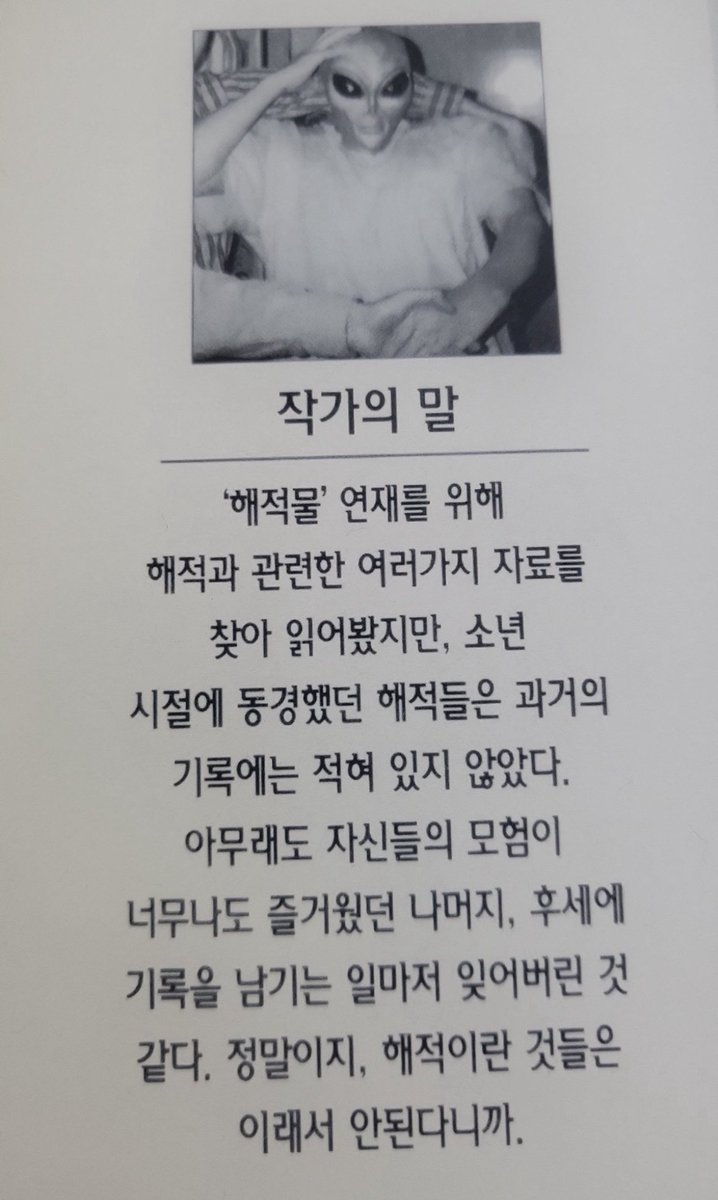 작가의 말
'해적물' 연재를 위해
해적과 관련한 여러가지 자료를
찾아 읽어봤지만, 소년
시절에 동경했던 해적들은 과거의
기록에는 적혀 있지 않았다.
아무래도 자신들의 모험이
너무나도 즐거웠던 나머지, 후세에
기록을 남기는 일마저 잊어버린 것
같다. 정말이지, 해적이란 것들은
이래서 안된다니까.